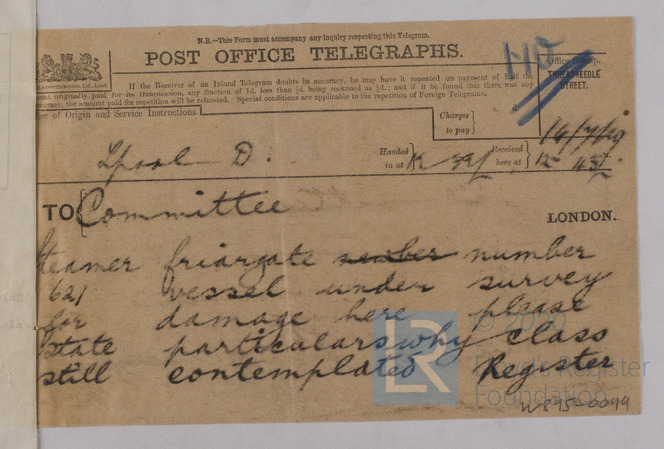 N.B.—This Form must accompany any inquiry respecting this Telegram.
POST OFFICE TELEGRAPHS.
If the Receiver of an Inland Telegram doubts its accuracy, he may have it repeated on payment of half the
amount originally paid for its transmission, any fraction of 1d. less than ½d. being reckoned as ½d.; and if it be found that there was any
inaccuracy, the amount paid for repetition will be refunded. Special conditions are applicable to the repetition of Foreign Telegrams.
Office Stamp.
THREADNEEDLE
STREET.
ce of Origin and Service Instructions.
Charges
to pay
Handed
in at
Received
here at
Lpool D.
TO Committee
LONDON.
teamer friargate number
621 vessel under survey
for damage here please
state particulars why class
still contemplated Register
© 2020
LR
Lloyd's Register
Foundation
W895-0099